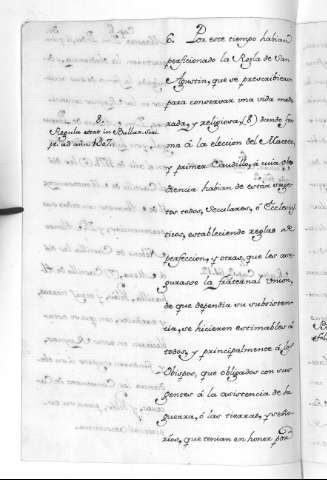 6. Por este tiempo habian
perficionado la Regla de San
Agustin, que se prescribieron
para conservar una vida mode
rada, y religiosa, (8) dando for
ma á la elección del Maestre,
y primer Caudillo, á cuia obe
diencia habian de estár suge
tos todos, Seculares, ó Eclesiás
ticos, estableciendo reglas de
perfeccion, y otras, que les ase
gurasse la fraternal Union,
de que dependia su subsisten
cia, se hicieron estimables á
todos, y principalmente á los
Obispos, que obligados con sus
gentes á la asistencia de la
guerra, ó las tierras, y seño
ríos, que tenian en honor por
8.
Regula extat in Bullar.
ad año 1171.